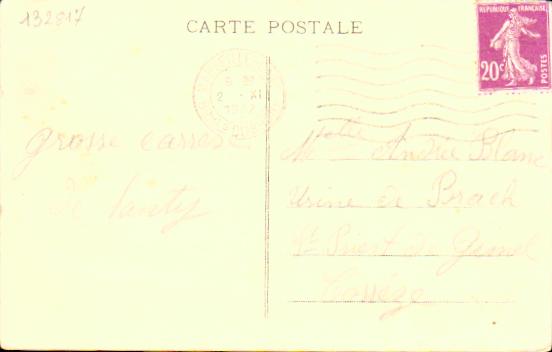 132817
CARTE POSTALE
REPUBLIQUE FRANÇAISE
20c
POSTES
2 - XI
grosse caresse
de
Melle Andrée Blanc
Usine de Brach
St Priest de Gimel
Corrèze